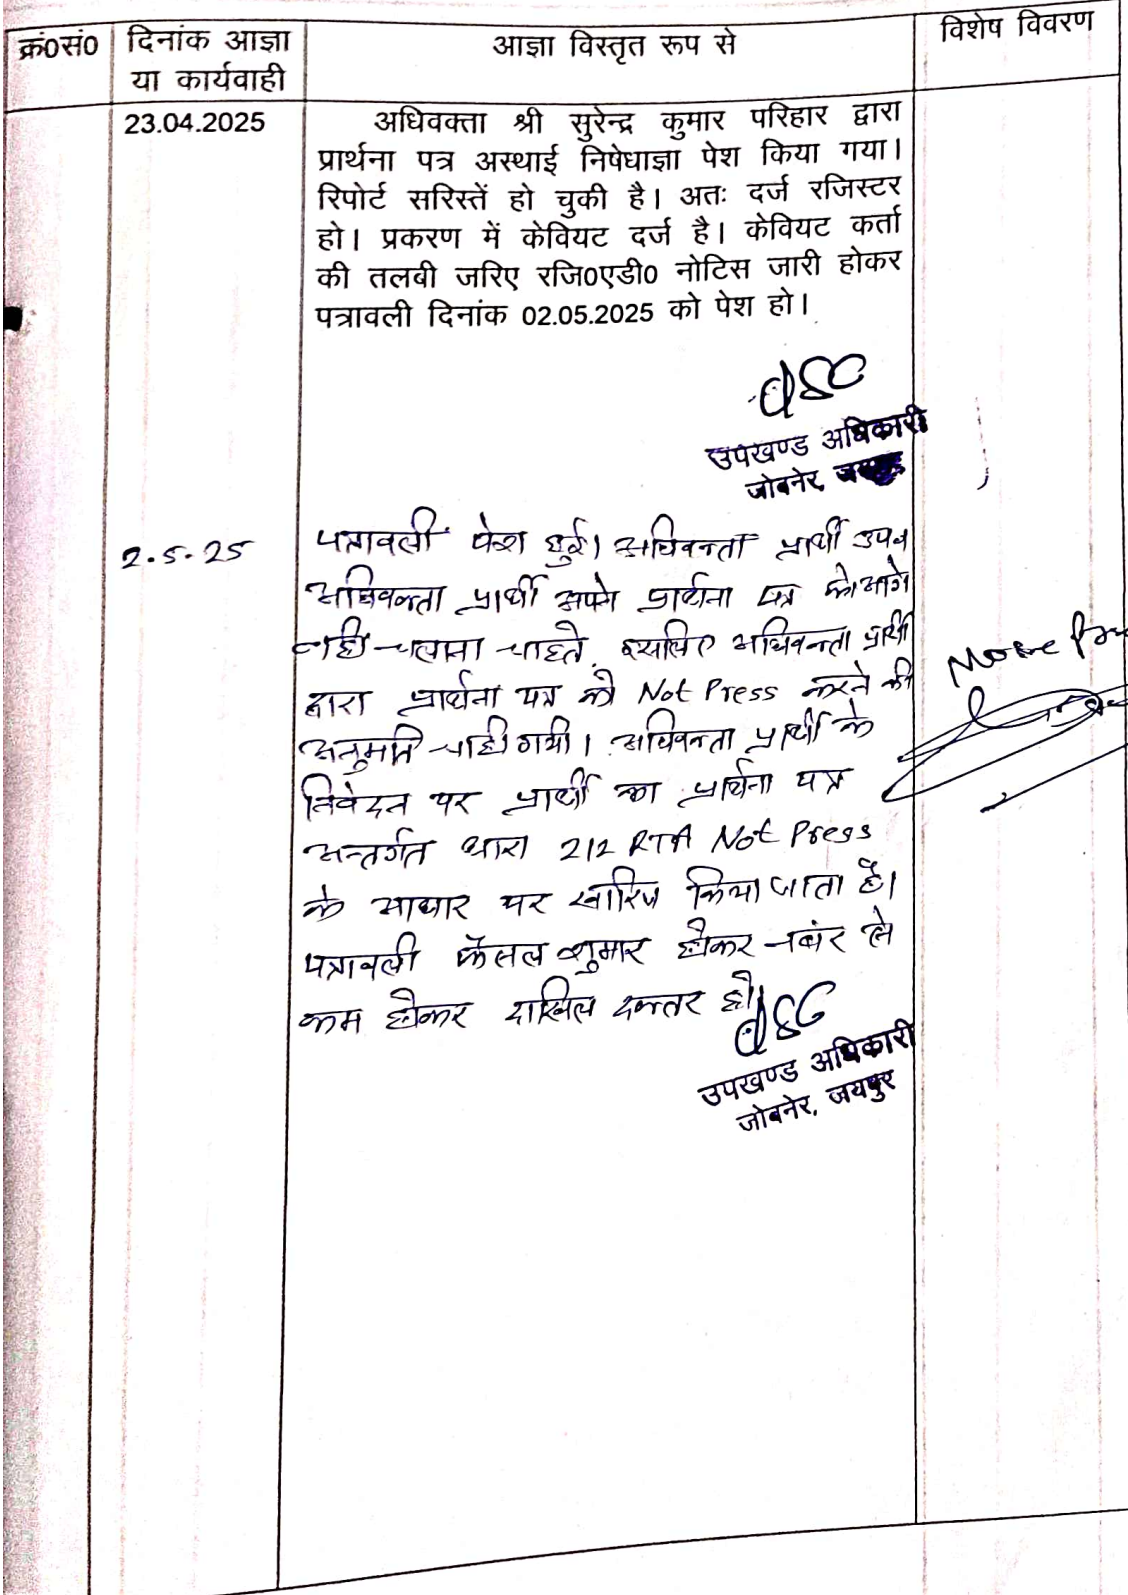 क्रं0सं0 दिनांक आज्ञा या कार्यवाही आज्ञा विस्तृत रूप से विशेष विवरण
23.04.2025
अधिवक्ता श्री सुरेन्द्र कुमार परिहार द्वारा
प्रार्थना पत्र अस्थाई निषेधाज्ञा पेश किया गया।
रिपोर्ट सरिस्तें हो चुकी है। अतः दर्ज रजिस्टर
हो। प्रकरण में केवियट दर्ज है। केवियट कर्ता
की तलबी जरिए रजि0एडी0 नोटिस जारी होकर
पत्रावली दिनांक 02.05.2025 को पेश हो।
उपखण्ड अधिकारी
जोबनेर,
2.5.25
पत्रावली पेश हुई। अधिवक्ता प्रार्थी उप0
अधिवक्ता प्रार्थी अपने प्रार्थना पत्र को आगे
नही चलाना चाहते, इसलिए अधिवक्ता प्रार्थी
द्वारा प्रार्थना पत्र को Not Press करने की
अनुमति चाही गयी। अधिवक्ता प्रार्थी के
निवेदन पर प्रार्थी का प्रार्थना पत्र
अन्तर्गत धारा 212 RTA Not Press
के आधार पर खारिज किया जाता है।
पत्रावली फैसल शुमार होकर नबंर से
कम होकर दाखिल दफ्तर हो।
उपखण्ड अधिकारी
जोबनेर, जयपुर